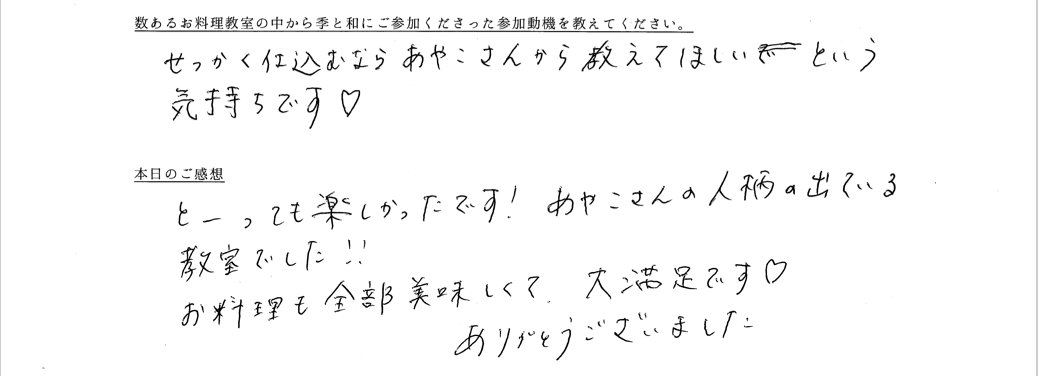 数あるお料理教室の中から季と和にご参加くださった参加動機を教えてください。
せっかく仕込むなら あやこさんから 教えてほしい という
気持ちです♡
本日のご感想
とーっても楽しかったです！ あやこさんの人柄の出ている
教室でした!!
お料理も全部美味しくて、大満足です♡
ありがとうございました